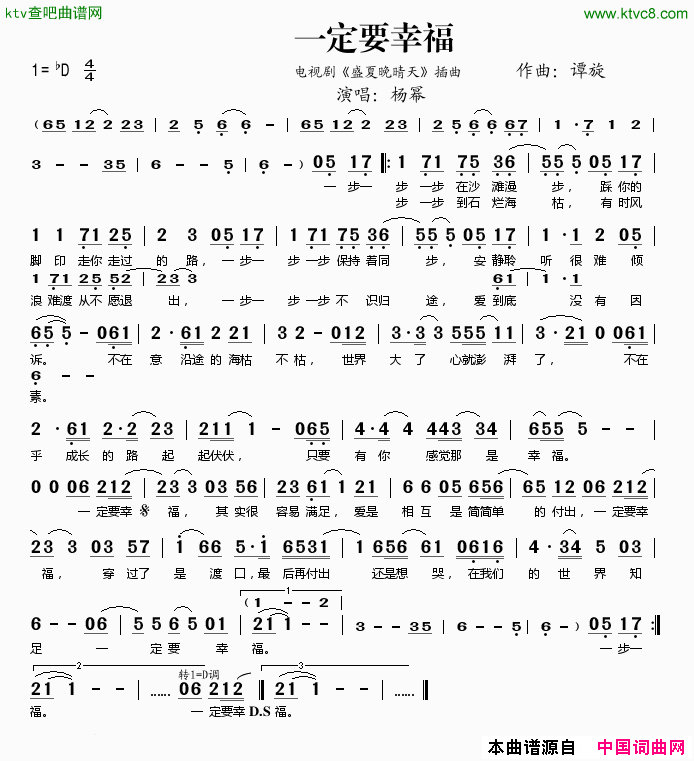 ktv查吧曲谱网
www.ktvc8.com
一定要幸福
1=♭D 4/4
电视剧《盛夏晚晴天》插曲
作曲：谭旋
演唱：杨幂
( 65 12 2 23 | 2 5 6 6 - | 65 12 2 23 | 2 56 6 67 | 1 · 7 1 2 |
3 - - 35 | 6 - - 5 | 6 - ) 05 17 ‖: 1 71 75 36 | 55 5 05 17 |
一步一 步 一步 在沙 滩漫 步， 踩 你的
步 一步 到石 烂海 枯， 有 时风
1 1 71 25 | 2 3 05 17 | 1 71 75 36 | 55 5 05 17 | 1 · 1 2 05 |
脚 印 走你 走过 的 路， 一步一 步 一步 保持 着同 步， 安 静聆 听 很 难 倾
1 71 25 52 | 23 3 61 | 1 · 1
浪 难渡 从不 愿退 出， 一步一 步 一步 不 识归 途， 爱 到底 没 有 因
65 5 - 061 | 2 · 61 2 21 | 3 2 - 012 | 3 · 3 3 555 11 | 3 · 21 0 061 |
诉。 不在 意 沿途 的 海枯 不 枯， 世界 大 了 心就澎 湃 了， 不在
6 - -
素。
2 · 61 2 · 2 23 | 211 1 - 065 | 4 · 4 4 443 34 | 655 5 - - |
乎 成长 的 路 起 起伏伏， 只要 有 你 感觉那 是 幸 福。
0 0 06 212 | 23 3 03 56 | 23 61 1 21 | 6 6 05 656 | 65 12 06 212 |
一 定要幸 福， 其 实很 容易 满足， 爱是 相 互 是 简简单 的 付出， 一 定要幸
23 3 03 57 | 1 1 5 · 1 6531 | 1 656 61 0616 | 4 · 34 5 03 |
福， 穿 过了 是 渡 口，最 后再付出 还是想 哭，在我们 的 世 界 知
1
( 1 - - 2 )
6 - - 06 | 5 56 5 01 | 21 1 - - | 3 - - 35 | 6 - - 5 | 6 - 05 17 :‖
足 一 定 要 幸 福。 一步一
2
转1=D调
3
21 1 - - | …… 06 212 ‖ 21 1 - - | …… ‖
福。 一 定要幸 D.S 福。
本曲谱源自 中国词曲网